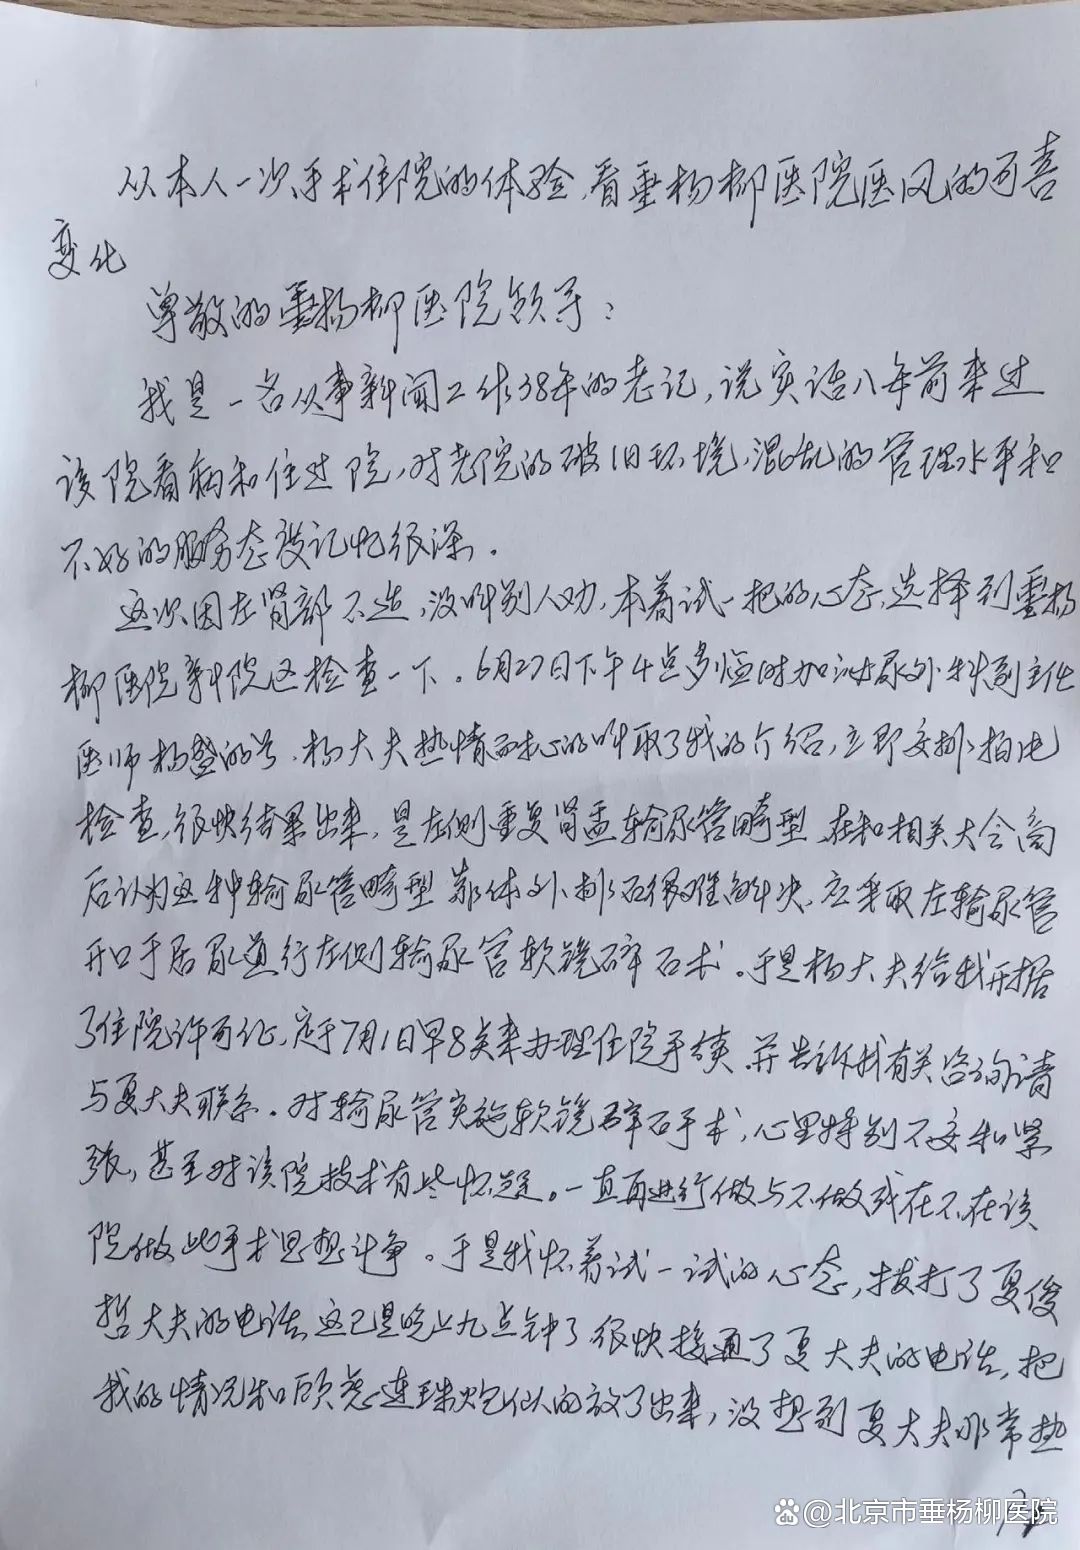 从本人一次手术住院的体验,看垂杨柳医院医风的可喜
变化
尊敬的垂杨柳医院领导:
我是一名从事新闻工作38年的老记,说实话八年前来过
该院看病和住过院,对老院的破旧环境,混乱的管理水平和
不好的服务态度记忆很深。
这次因左肾部不适,没听别人劝,本着试一把的心态,选择到垂杨
柳医院新院区检查一下。6月27日下午4点多临时加泌尿外科副主任
医师杨登的号,杨大夫热情而耐心的听取了我的介绍,立即安排拍片
检查,很快结果出来,是左侧重复肾盂输尿管畸型,在和相关大会商
后认为这种输尿管畸型靠体外排石很难解决,应采取左输尿管
开口于后尿道行左侧输尿管软镜碎石术。于是杨大夫给我开据
了住院许可证,定于7月1日早8点来办理住院手续,并告诉我有关咨询请
与夏大夫联系。对输尿管实施软镜碎石手术,心里特别不安和紧
张,甚至对该院技术有些怀疑。一直再进行做与不做或在不在该
院做此手术思想斗争。于是我怀着试一试的心态,拨打了夏俊
哲大夫的电话,这已是晚上九点钟了很快接通了夏大夫的电话,把
我的情况和顾虑连珠炮似的放了出来,没想到夏大夫非常热
@北京市垂杨柳医院